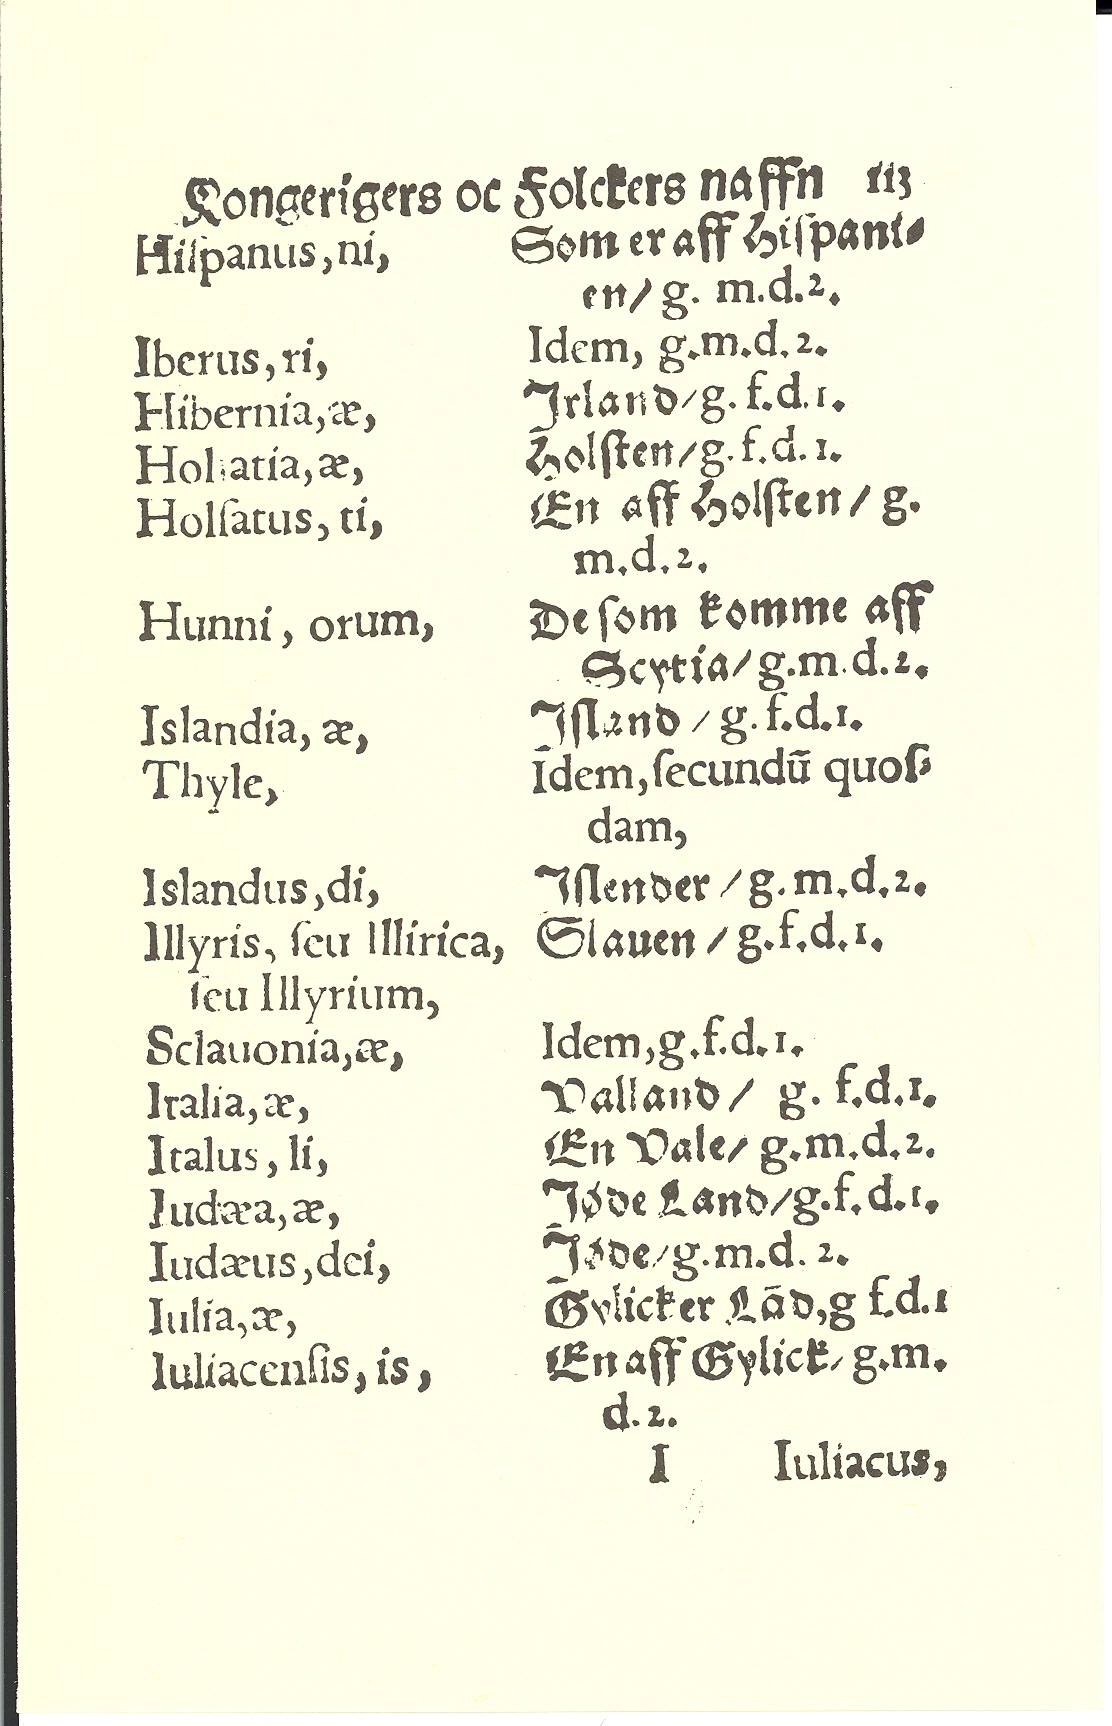 Kongerigers oc Folckers naffn 113
Hiſpanus, ni, Som er aff Hiſpani-
en/ g. m.d.2.
Iberus, ri, Idem, g.m.d.2.
Hibernia, æ, Irland/ g. f.d.1.
Holſatia, æ, Holſten/ g. f.d.1.
Holſatus, ti, En aff Holſten/ g.
m.d.2.
Hunni, orum, De ſom komme aff
Scytia/ g.m.d.2.
Islandia, æ, Iſland / g. f.d.1.
Thyle, Idem, ſecundū quoſ-
dam,
Islandus, di, Iſlender / g. m.d.2.
Illyris, ſeu Illirica, Slauen / g.f.d.1.
ſeu Illyrium,
Sclauonia, æ, Idem, g.f.d.1.
Italia, æ, Valland/ g. f.d.1.
Italus, li, En Vale/ g.m.d.2.
Iudæa, æ, Iøde Land/ g.f.d.1.
Iudæus, dei, Iøde/ g.m.d. 2.
Iulia, æ, Gylicker Lād, g f.d.1
Iuliacenſis, is, En aff Gylick/ g.m.
d.2.
I Iuliacus,